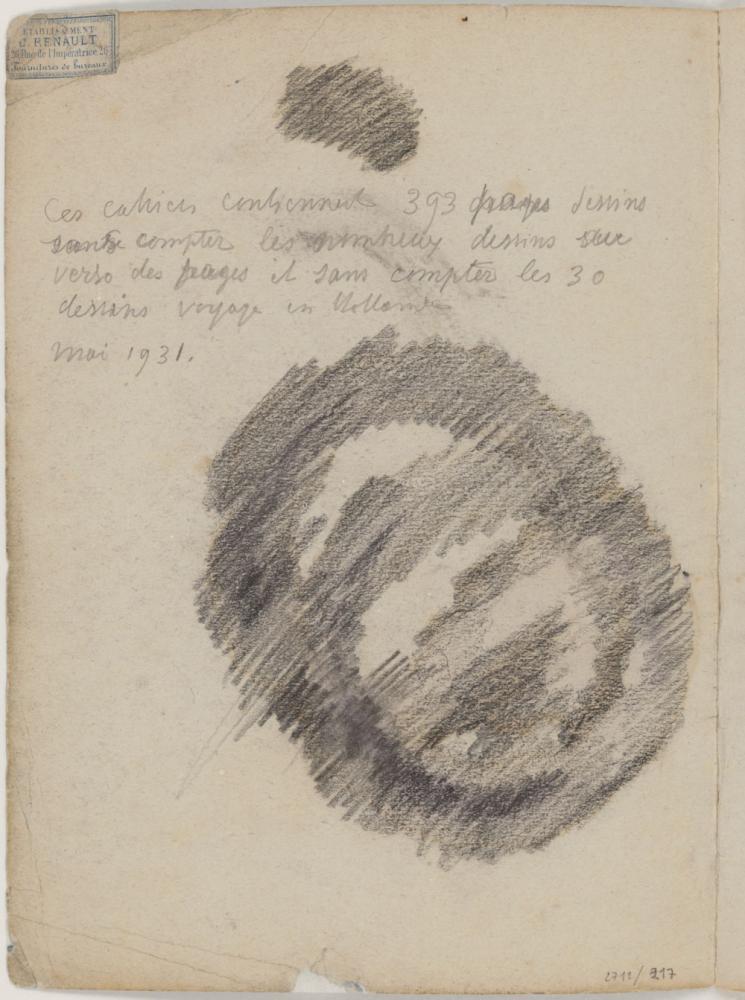 ETABLISSEMENT
C. RENAULT
26 Rue de l'Impératrice 26
Fournitures de bureaux
Ces cahiers contiennent 393 pages dessins
sans compter les nombreux dessins sur
verso des pages et sans compter les 30
dessins voyage en Hollande
Mai 1931.
2711/217